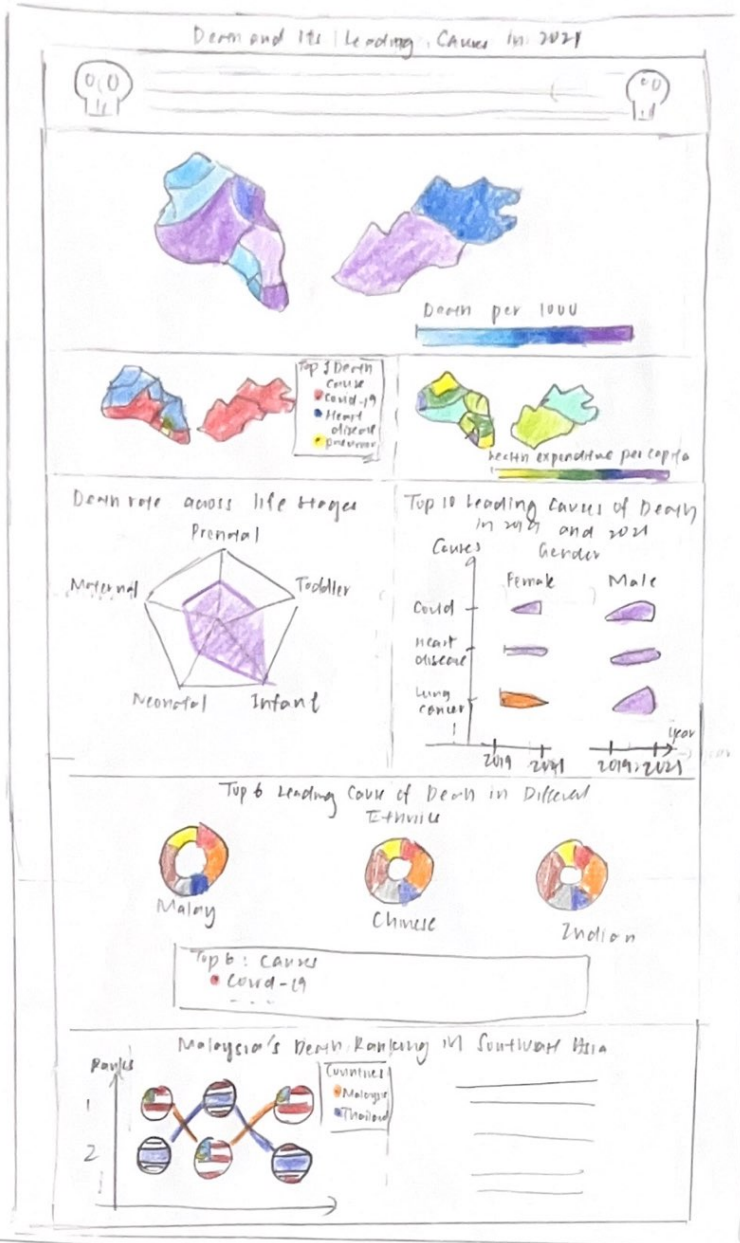 Death and Its Leading Causes in 2021
Death per 1000
Top 3 Death
Cause
Covid-19
Heart
disease
pneumonia
health expenditure per capita
Death rate across life stages
Prenatal
Maternal
Toddler
Neonatal
Infant
Top 10 Leading Causes of Death
in 2019 and 2021
Causes
Gender
Female
Male
Covid
Heart
disease
Lung
cancer
year
2019
2021
2019
2021
Top 6 Leading Cause of Death in Different
Ethnics
Malay
Chinese
Indian
Top 6: Causes
Covid-19
Malaysia's Death Ranking in Southeast Asia
Ranks
1
2
Countries
Malaysia
Thailand